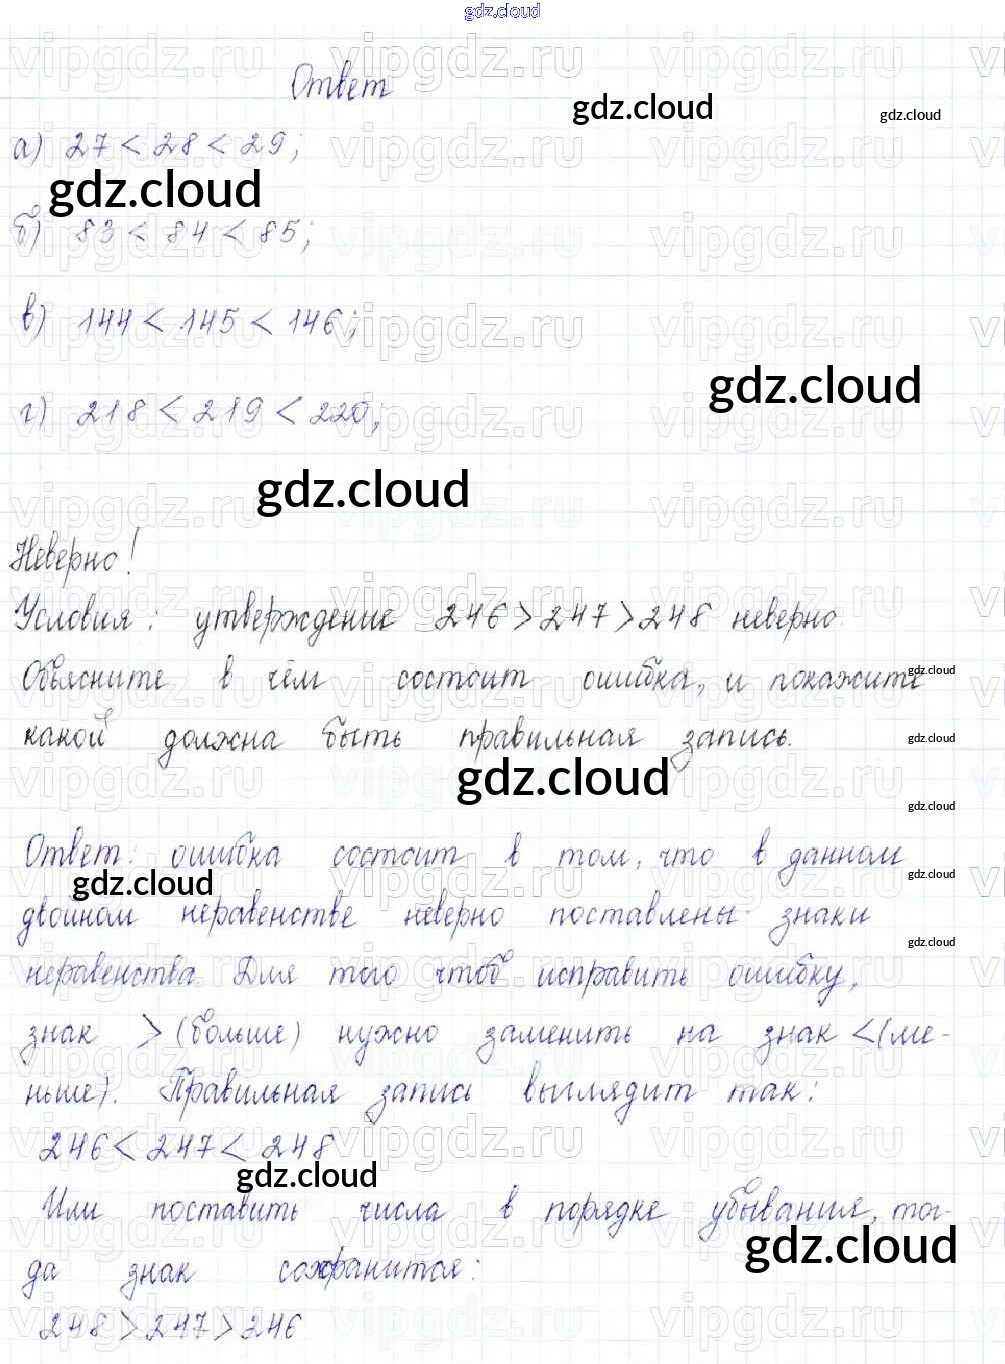 gdz.cloud
Ответ
gdz.cloud
gdz.cloud
а) 27 < 28 < 29;
gdz.cloud
б) 83 < 84 < 85;
в) 144 < 145 < 146;
gdz.cloud
г) 218 < 219 < 220;
gdz.cloud
Неверно!
Условия: утверждение 246 > 247 > 248 неверно.
Объясните в чём состоит ошибка, и покажите
gdz.cloud
какой должна быть правильная запись.
gdz.cloud
gdz.cloud
gdz.cloud
Ответ: ошибка состоит в том, что в данном
gdz.cloud
gdz.cloud
двойном неравенстве неверно поставлены знаки
gdz.cloud
неравенства. Для того чтоб исправить ошибку,
знак > (больше) нужно заменить на знак < (ме-
ньше). Правильная запись выглядит так:
246 < 247 < 248
gdz.cloud
Или поставить числа в порядке убывания, тог-
gdz.cloud
да знак сохранится:
248 > 247 > 246
vipgdz.ru